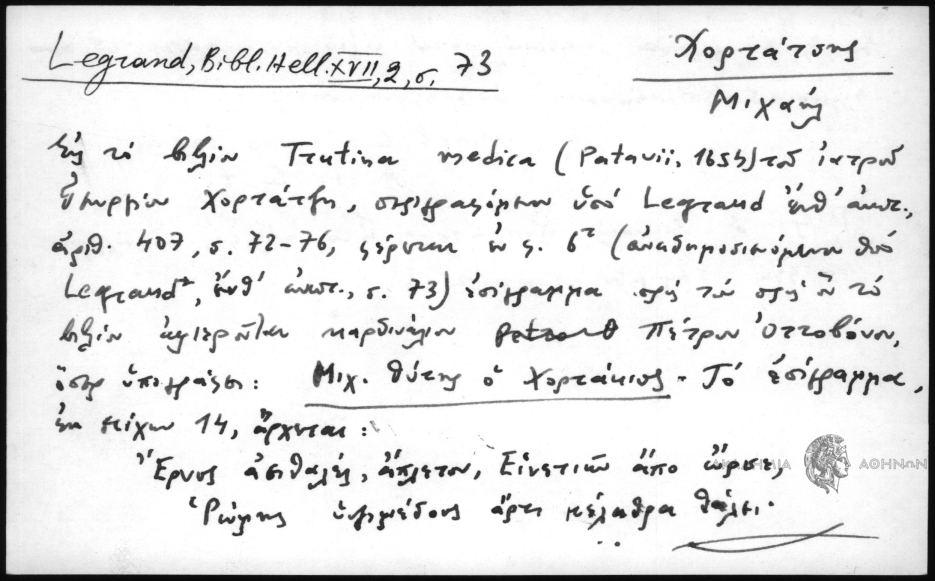 Legrand, Bibl. Hell. XVII, 2, σ. 73
Χορτάτσης
Μιχαήλ
Εἰς τὸ βιβλίον Trutina medica (Patavii, 1654) τοῦ ἰατροῦ
Χορτάτζη, περιγραφόμενον ὑπὸ Legrand ἔνθ' ἀνωτ.,
ἀριθ. 407, σ. 72-76, φέρεται ἐν σ. 6 (ἀναδημοσιευόμενον ὑπὸ
Legrand, ἔνθ' ἀνωτ., σ. 73) ἐπίγραμμα πρὸς τὸν πρὸς ὃν τὸ
βιβλίον ἀφιεροῦται καρδινάλιον Πέτρον Ὀττοβόνον,
ὅπερ ὑπογράφει: Μιχ. θύτης ὁ Χορτάκιος. Τὸ ἐπίγραμμα,
ἐκ στίχων 14, ἄρχεται:
Ἔρνος ἀειθαλές, ἄπλετον, Εἱνετιῶν ἄπο ὦρσε,
Ῥώμης ὑψιμέδους ἄρτι μέλαθρα θάλει.
ΑΚΑΔΗΜΙΑ ΑΘΗΝΩΝ